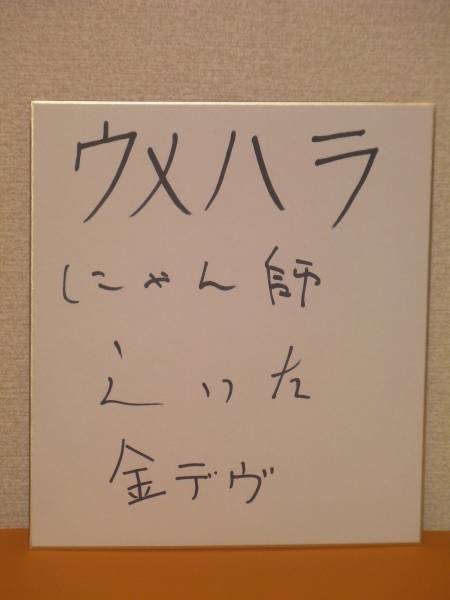 ウメハラ
にゃん師
えいた
金デヴ